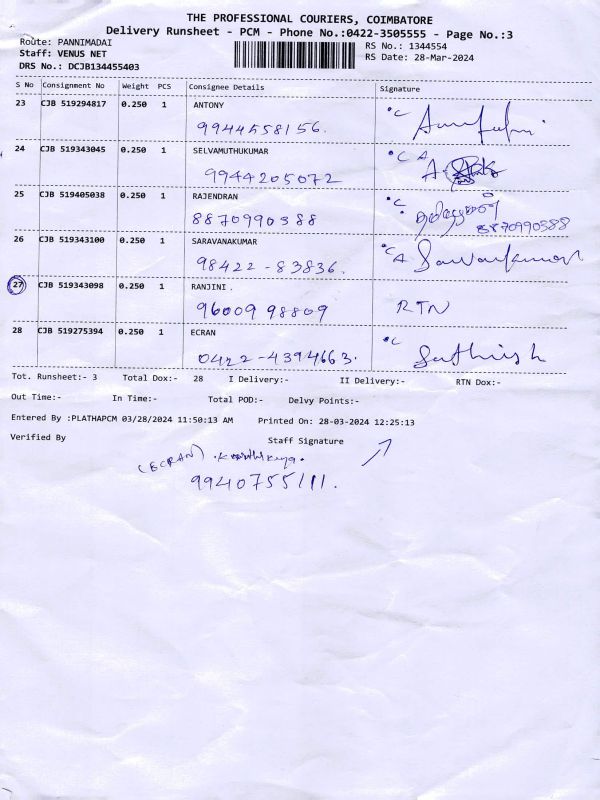 THE PROFESSIONAL COURIERS, COIMBATORE
Delivery Runsheet - PCM - Phone No.:0422-3505555 - Page No.:3
Route: PANNIMADAI RS No.: 1344554
Staff: VENUS NET RS Date: 28-Mar-2024
DRS No.: DCJB134455403
S No Consignment No Weight PCS Consignee Details Signature
23 CJB 519294817 0.250 1 ANTONY °C
9944558156.
24 CJB 519343045 0.250 1 SELVAMUTHUKUMAR °C A
9944205072
25 CJB 519405038 0.250 1 RAJENDRAN °C
8870990388 8870990588
26 CJB 519343100 0.250 1 SARAVANAKUMAR °C A Saravankumar
98422-83836.
27 CJB 519343098 0.250 1 RANJINI . RTN
96009 98809
28 CJB 519275394 0.250 1 ECRAN °C Sathish
0422-4394663.
Tot. Runsheet:- 3 Total Dox:- 28 I Delivery:- II Delivery:- RTN Dox:-
Out Time:- In Time:- Total POD:- Delvy Points:-
Entered By :PLATHAPCM 03/28/2024 11:50:13 AM Printed On: 28-03-2024 12:25:13
Verified By Staff Signature
(ECRAN)
9940755111.